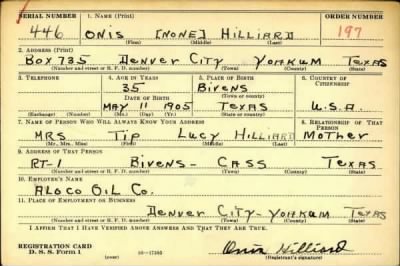 SERIAL NUMBER 1. NAME (Print) ORDER NUMBER
446 ONIS [NONE] HILLIARD 197
(First) (Middle) (Last)
2. ADDRESS (Print)
BOX 735 DENVER CITY YOAKUM TEXAS
(Number and street or R. F. D. number) (Town) (County) (State)
3. TELEPHONE 4. AGE IN YEARS 5. PLACE OF BIRTH 6. COUNTRY OF CITIZENSHIP
35 BIVENS
DATE OF BIRTH (Town or county)
MAY 11 1905 TEXAS U.S.A.
(Exchange) (Number) (Mo.) (Day) (Yr.) (State or country)
7. NAME OF PERSON WHO WILL ALWAYS KNOW YOUR ADDRESS 8. RELATIONSHIP OF THAT PERSON
MRS. TIP LUCY HILLIARD MOTHER
(Mr., Mrs., Miss) (First) (Middle) (Last)
9. ADDRESS OF THAT PERSON
RT-1 BIVENS- CASS TEXAS
(Number and street or R. F. D. number) (Town) (County) (State)
10. EMPLOYER'S NAME
ALOCO OIL CO.
11. PLACE OF EMPLOYMENT OR BUSINESS
DENVER CITY-YOAKUM TEXAS
(Number and street or R. F. D. number) (Town) (County) (State)
I AFFIRM THAT I HAVE VERIFIED ABOVE ANSWERS AND THAT THEY ARE TRUE.
REGISTRATION CARD
D. S. S. Form 1 16—17105 Onis Hilliard